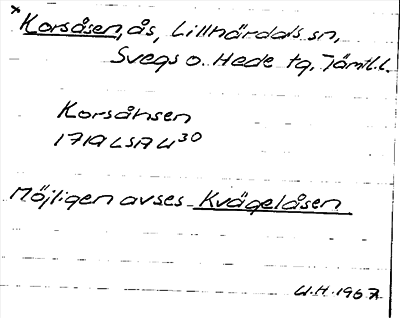 *Korsåsen, ås, Lillhärdals sn,
Svegs o. Hede tg, Jämtl.l.
Korsåhsen
1719 LSA U30
Möjligen avses Kvägelåsen
U.H. 1967